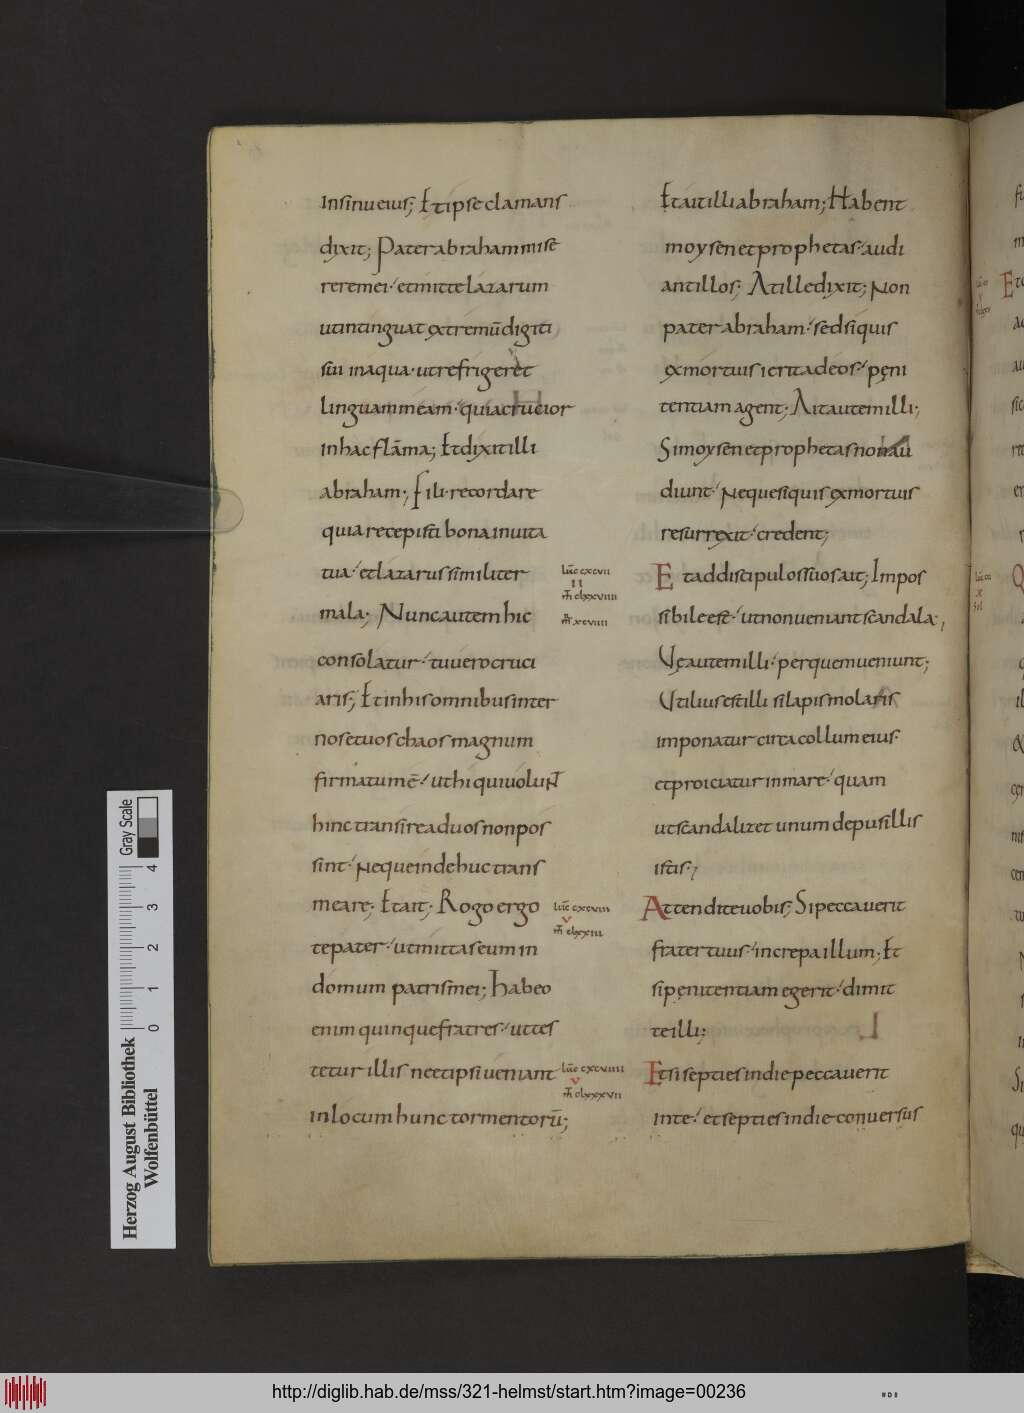 In sinu eius; Et ipse clamans
dixit; Pater abraham mise
rere mei· et mitte lazarum
ut intinguat extremū digiti
sui in aqua· ut refrigeret
linguam meam· quia crucior
in hac flāma; Et dixit illi
abraham; Fili· recordare
quia recepisti bona in uita
tua· et lazarus similiter
mala; Nunc autem hic
consolatur· tu uero cruci
aris; Et in his omnibus inter
nos et uos chaos magnum
firmatum ē· ut hi qui uolunt
hinc transire ad uos non pos
sint· neque inde huc trans
meare; Et ait; Rogo ergo
te pater· ut mittas eum in
domum patris mei; habeo
enim quinque fratres· ut tes
tetur illis ne et ipsi ueniant
in locum hunc tormentorū;
Et ait illi abraham; Habent
moysen et prophetas· audi
ant illos; At ille dixit; Non
pater abraham· sed si quis
ex mortuis ierit ad eos· pęni
tentiam agent; Ait autem illi;
Si moysen et prophetas non au
diunt· neque si quis ex mortuis
resurrexit· credent;
Et ad discipulos suos ait; Impos
sibile est· ut non ueniant scandala;
Uę autem illi· per quem ueniunt;
Utilius est illi si lapis molaris
imponatur circa collum eius·
et proiciatur in mare· quam
ut scandalizet unum de pusillis
istis;
Attendite uobis; Si peccauerit
frater tuus· increpa illum; Et
si pęnitentiam egerit· dimit
te illi;
Et si septies in die peccauerit
in te· et septies in die conuersus
luc cxcvii
II
xcviiii
luc cxcviii
V
luc cxcviiii
V
Herzog August Bibliothek
Wolfenbüttel
0 1 2 3 4
Gray Scale
http://diglib.hab.de/mss/321-helmst/start.htm?image=00236